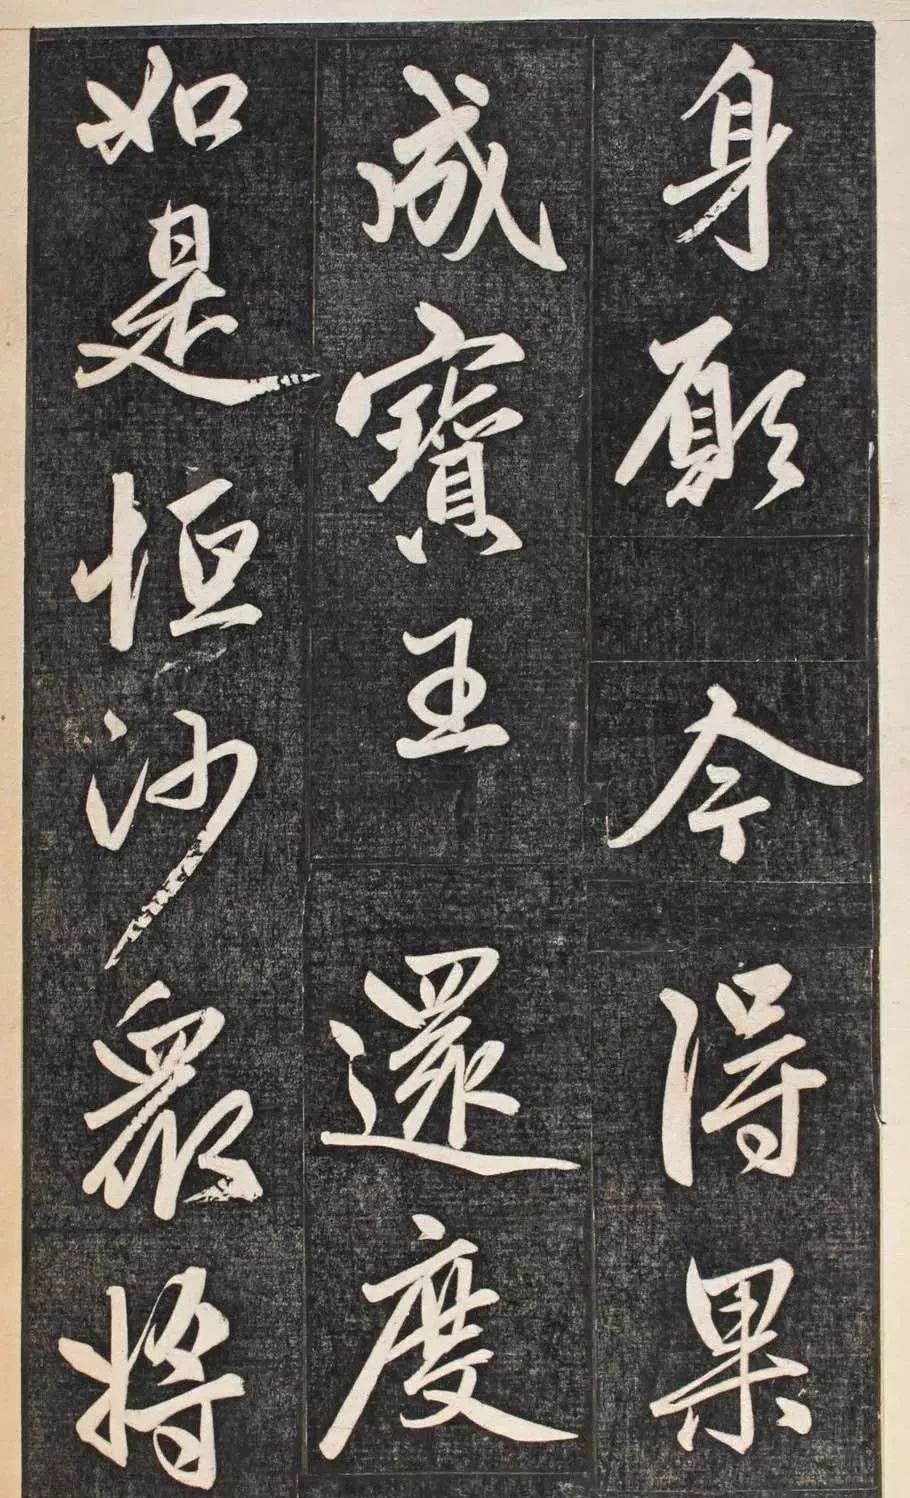 身願今得果
成寶王還度
如是恒沙眾將